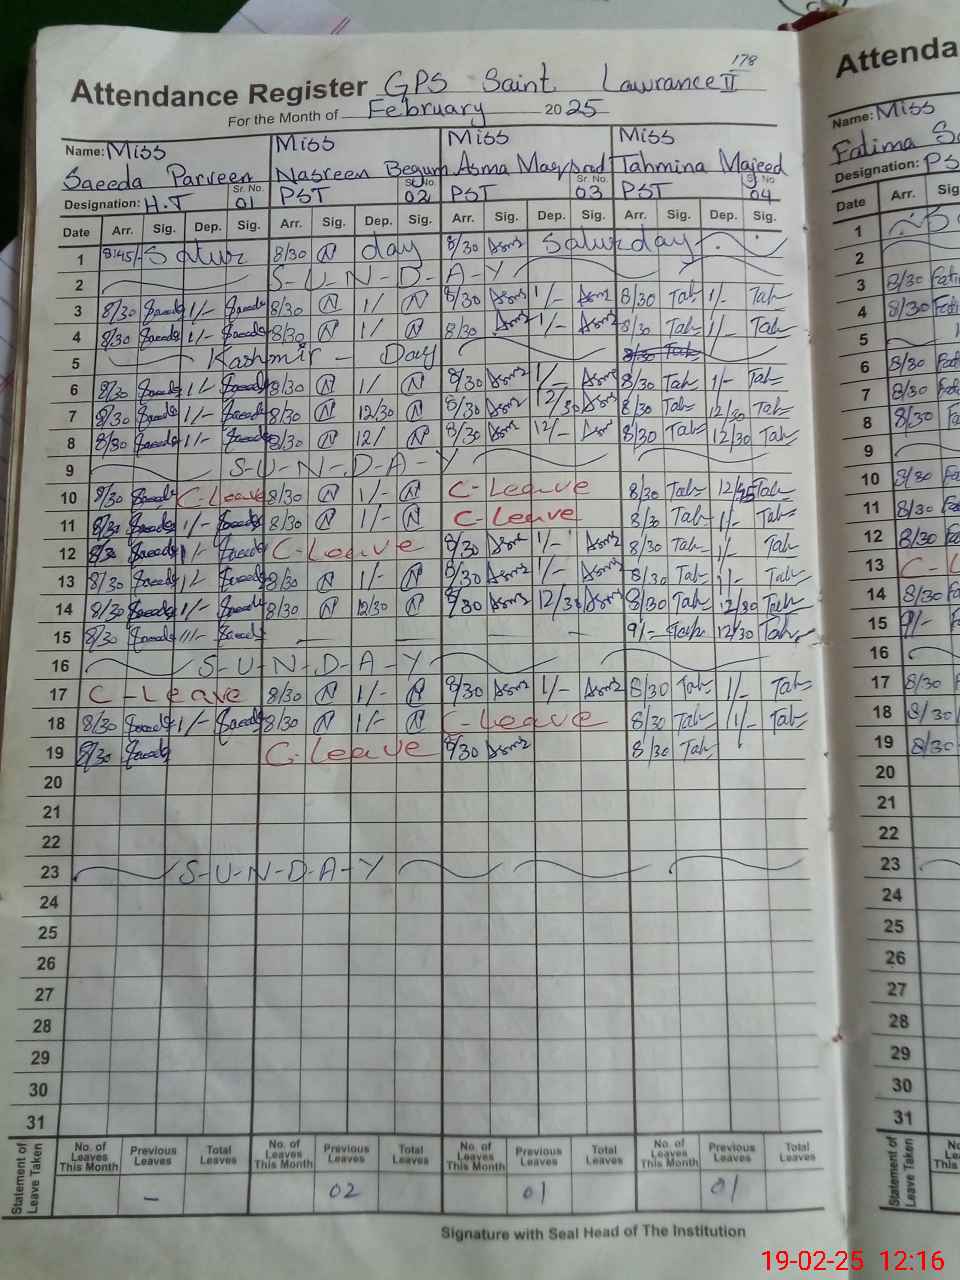 178
Attendance Register GPS Saint Lawrance II
For the Month of February 2025
Name: Miss Saeeda Parveen Miss Nasreen Begum Miss Asma Miss Tahmina Majeed
Designation: H.T Sr. No. 01 PST 02 PST Sr. No. 03 PST Sr. No. 04
Date Arr. Sig. Dep. Sig. Arr. Sig. Dep. Sig. Arr. Sig. Dep. Sig. Arr. Sig. Dep. Sig.
1 8/45/- Satur 8/30 N day 8/30 Asma Saturday
2 S-U-N-D-A-Y
3 8/30 Saeeda 1/- Saeeda 8/30 N 1/ N 8/30 Asma 1/- Asma 8/30 Tah 1/- Tah
4 8/30 Saeeda 1/- Saeeda 8/30 N 1/ N 8/30 Asma 1/- Asma 8/30 Tah 1/- Tah
5 Kashmir - Day 8/30 Tah
6 8/30 Saeeda 1/- Saeeda 8/30 N 1/ N 8/30 Asma 1/- Asma 8/30 Tah 1/- Tah
7 8/30 Saeeda 1/- Saeeda 8/30 N 12/30 N 8/30 Asma 12/30 Asma 8/30 Tah 12/30 Tah
8 8/30 Saeeda 1/- Saeeda 8/30 N 12/ N 8/30 Asma 12/- Asma 8/30 Tah 12/30 Tah
9 S-U-N-D-A-Y
10 8/30 Saeeda C-Leave 8/30 N 1/- N C-Leave 8/30 Tah 12/45 Tah
11 8/30 Saeeda 1/- Saeeda 8/30 N 1/- N C-Leave 8/30 Tah 1/- Tah
12 8/30 Saeeda 1/- Saeeda C-Leave 8/30 Asma 1/- Asma 8/30 Tah 1/- Tah
13 8/30 Saeeda 1/- Saeeda 8/30 N 1/- N 8/30 Asma 1/- Asma 8/30 Tah 1/- Tah
14 8/30 Saeeda 1/- Saeeda 8/30 N 12/30 N 8/30 Asma 12/30 Asma 8/30 Tah 12/30 Tah
15 8/30 Saeeda 11/- Saeeda — — — - 9/- Tah 12/30 Tah
16 S-U-N-D-A-Y
17 C-Leave 8/30 N 1/- N 8/30 Asma 1/- Asma 8/30 Tah 1/- Tah
18 8/30 Saeeda 1/- Saeeda 8/30 N 1/- N C-Leave 8/30 Tah 1/- Tah
19 8/30 Saeeda C-Leave 8/30 Asma 8/30 Tah
20
21
22
23 S-U-N-D-A-Y
24
25
26
27
28
29
30
31
Statement of Leave Taken
No. of Leaves This Month Previous Leaves Total Leaves No. of Leaves This Month Previous Leaves Total Leaves No. of Leaves This Month Previous Leaves Total Leaves No. of Leaves This Month Previous Leaves Total Leaves
- 02 01 01
Signature with Seal Head of The Institution
Attenda
Name: Miss
Fatima
Designation: PS
Date Arr. Sig
1
2
3 8/30
4 8/30
5
6 8/30
7 8/30
8 8/30
9
10 8/30
11 8/30
12 8/30
13 C-L
14 8/30
15 9/-
16
17 8/30
18 8/30
19 8/30
20
21
22
23
24
25
26
27
28
29
30
31
Statement of Leave Taken
19-02-25 12:16